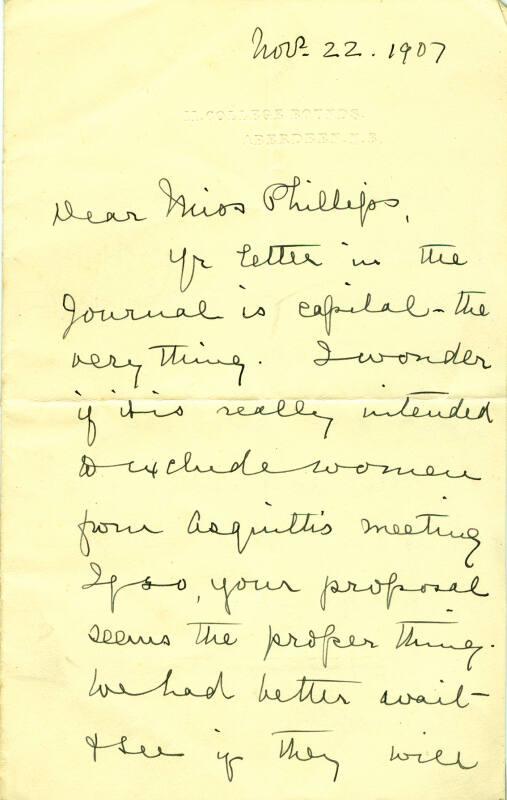 Novr. 22. 1907
11. COLLEGE BOUNDS.
ABERDEEN. N.B.
Dear Miss Phillips,
Yr letter in the
Journal is capital - the
very thing. I wonder
if it is really intended
to exclude women
from Asquith's meeting
If so, your proposal
seems the proper thing.
We had better wait
& see if they will